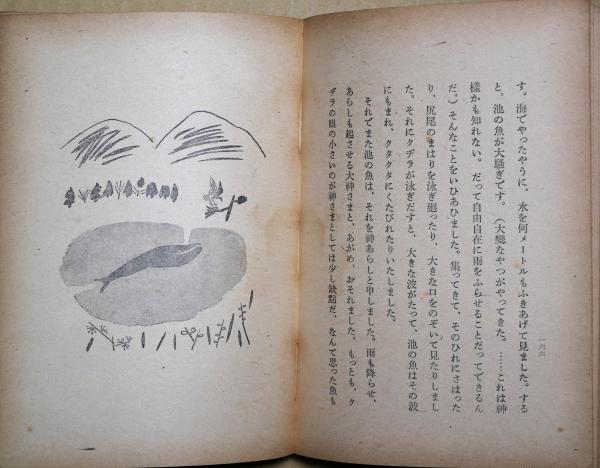 す。海でやつたやうに、水を何メートルもふきあげて見ました。する
と、池の魚が大騷ぎです。（大變なやつがやつてきた。……これは神
樣かも知れない。だつて自由自在に雨をふらせることだつてできるん
だ。）そんなことをいひあひました。集つてきて、そのひれにさはつた
り、尻尾のまはりを泳ぎ廻つたり、大きな口をのぞいて見たりしまし
た。それにクヂラが泳ぎだすと、大きな波がたつて、池の魚はその波
にもまれ、クタクタにくたびれたりいたしました。
それでまた池の魚は、それを神あらしと申しました。雨も降らせ、
あらしも起させる大神さまと、あがめ、おそれました。もつとも、ク
ヂラの眼の小さいのが神さまとしては少し缺點だ、なんて思つた魚も
一六六